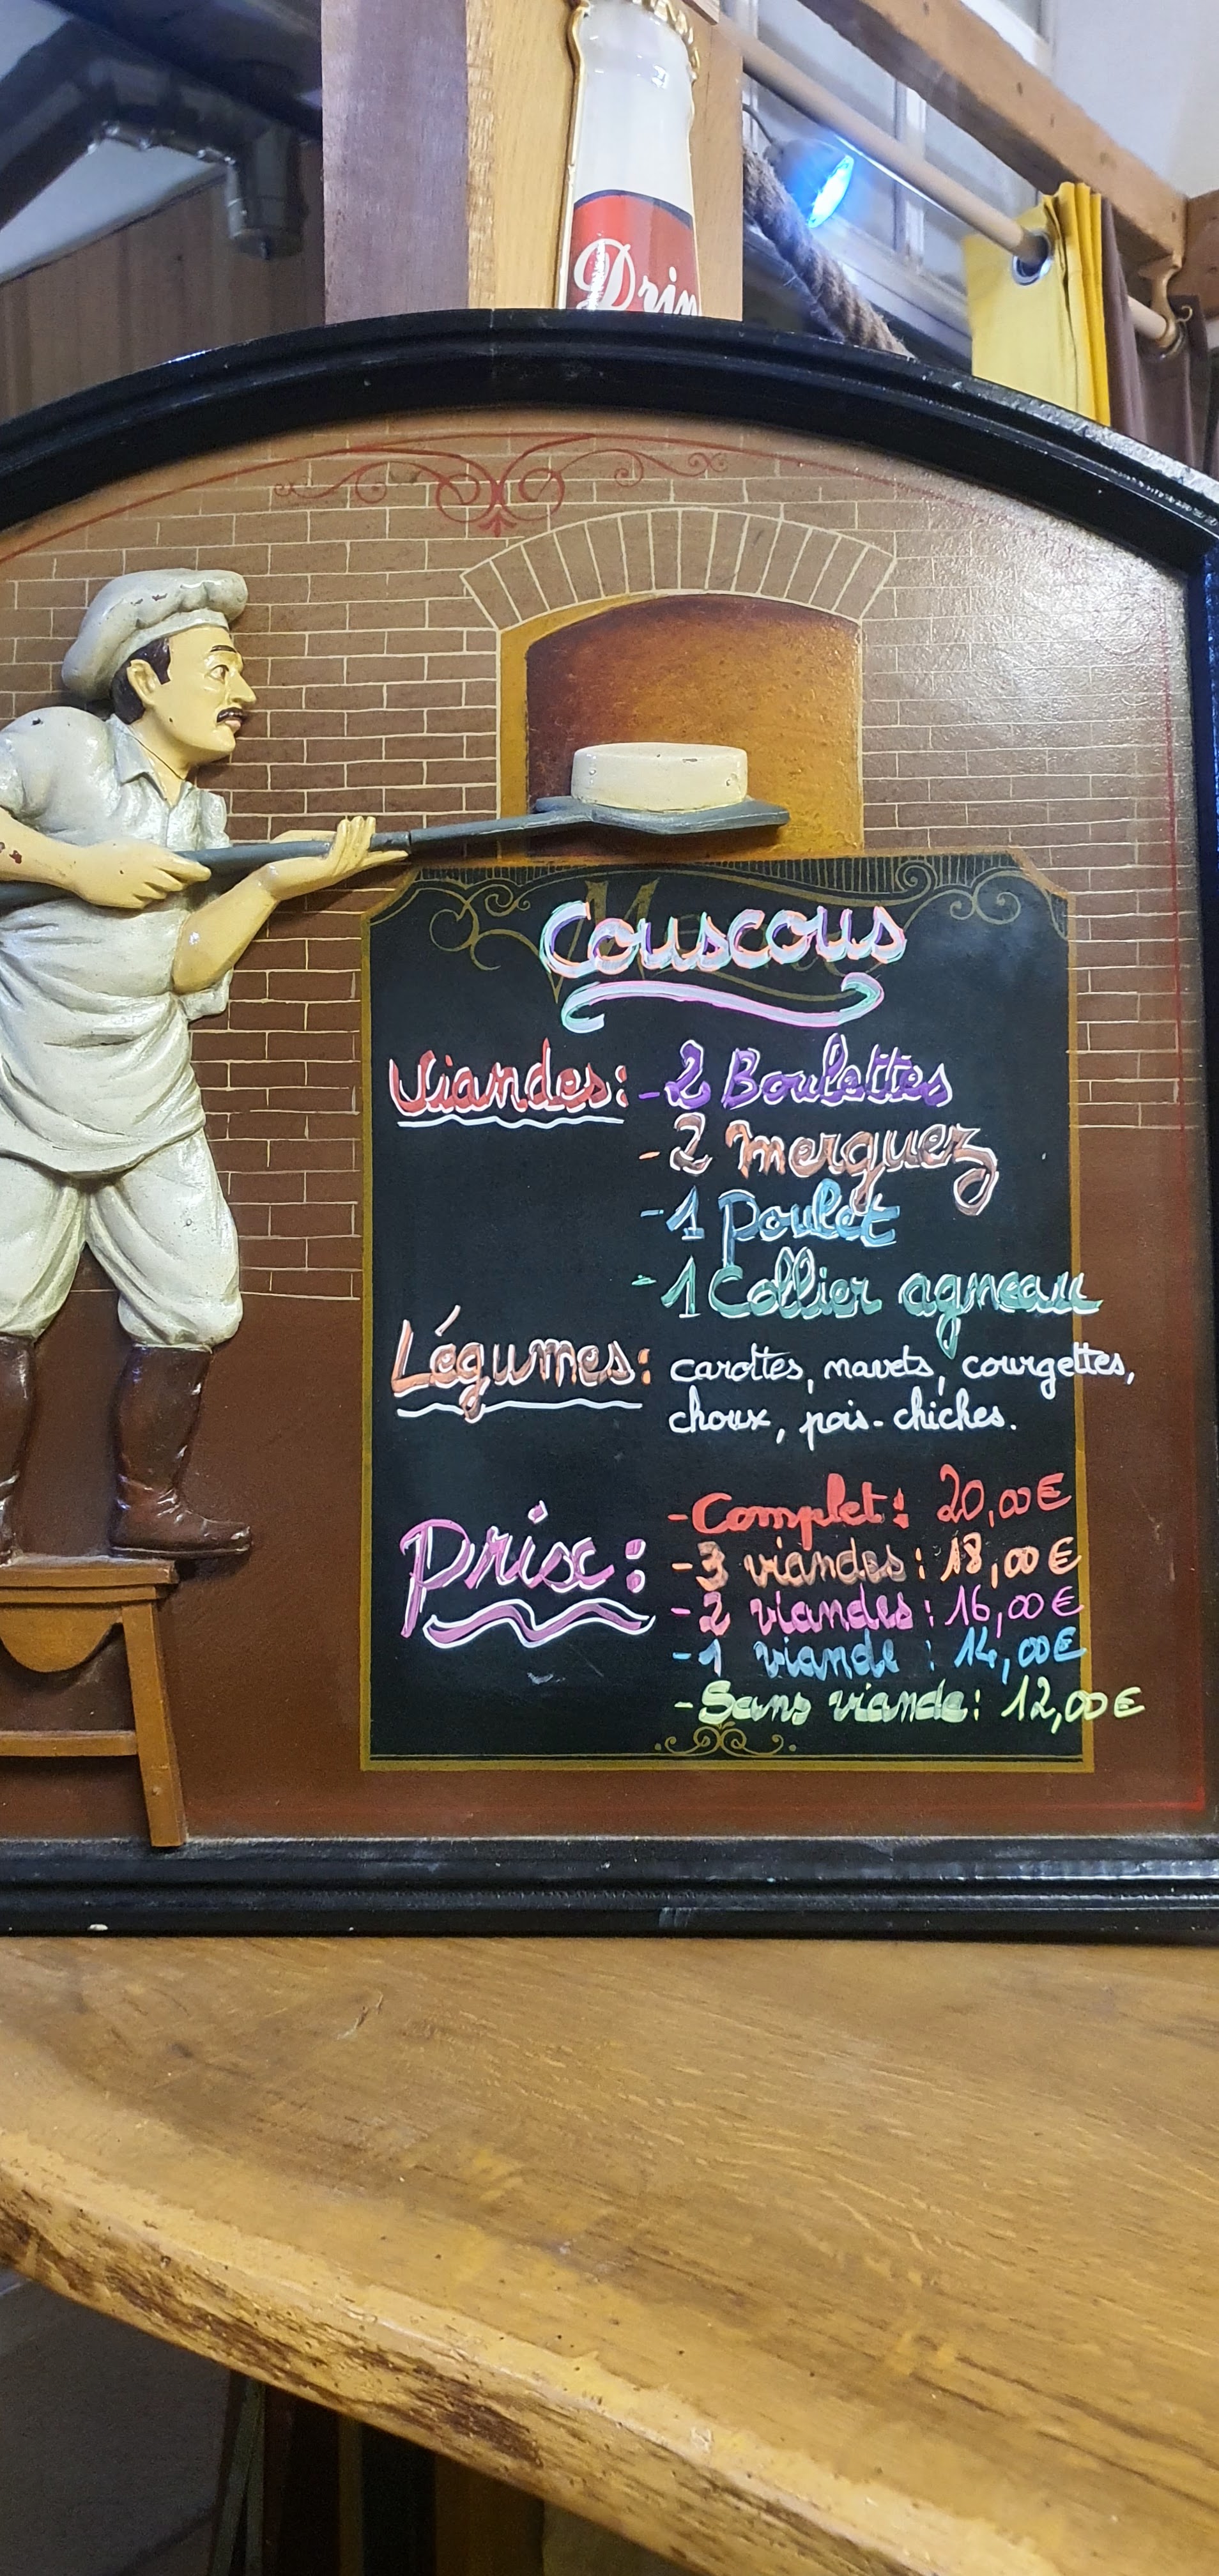 Drin
Couscous
Viandes: - 2 Boulettes
- 2 merguez
- 1 Poulet
- 1 Collier agneau
Légumes: carottes, navets, courgettes,
choux, pois-chiches.
Prix: - Complet: 20,00€
- 3 viandes: 18,00€
- 2 viandes: 16,00€
- 1 viande: 14,00€
- Sans viande: 12,00€